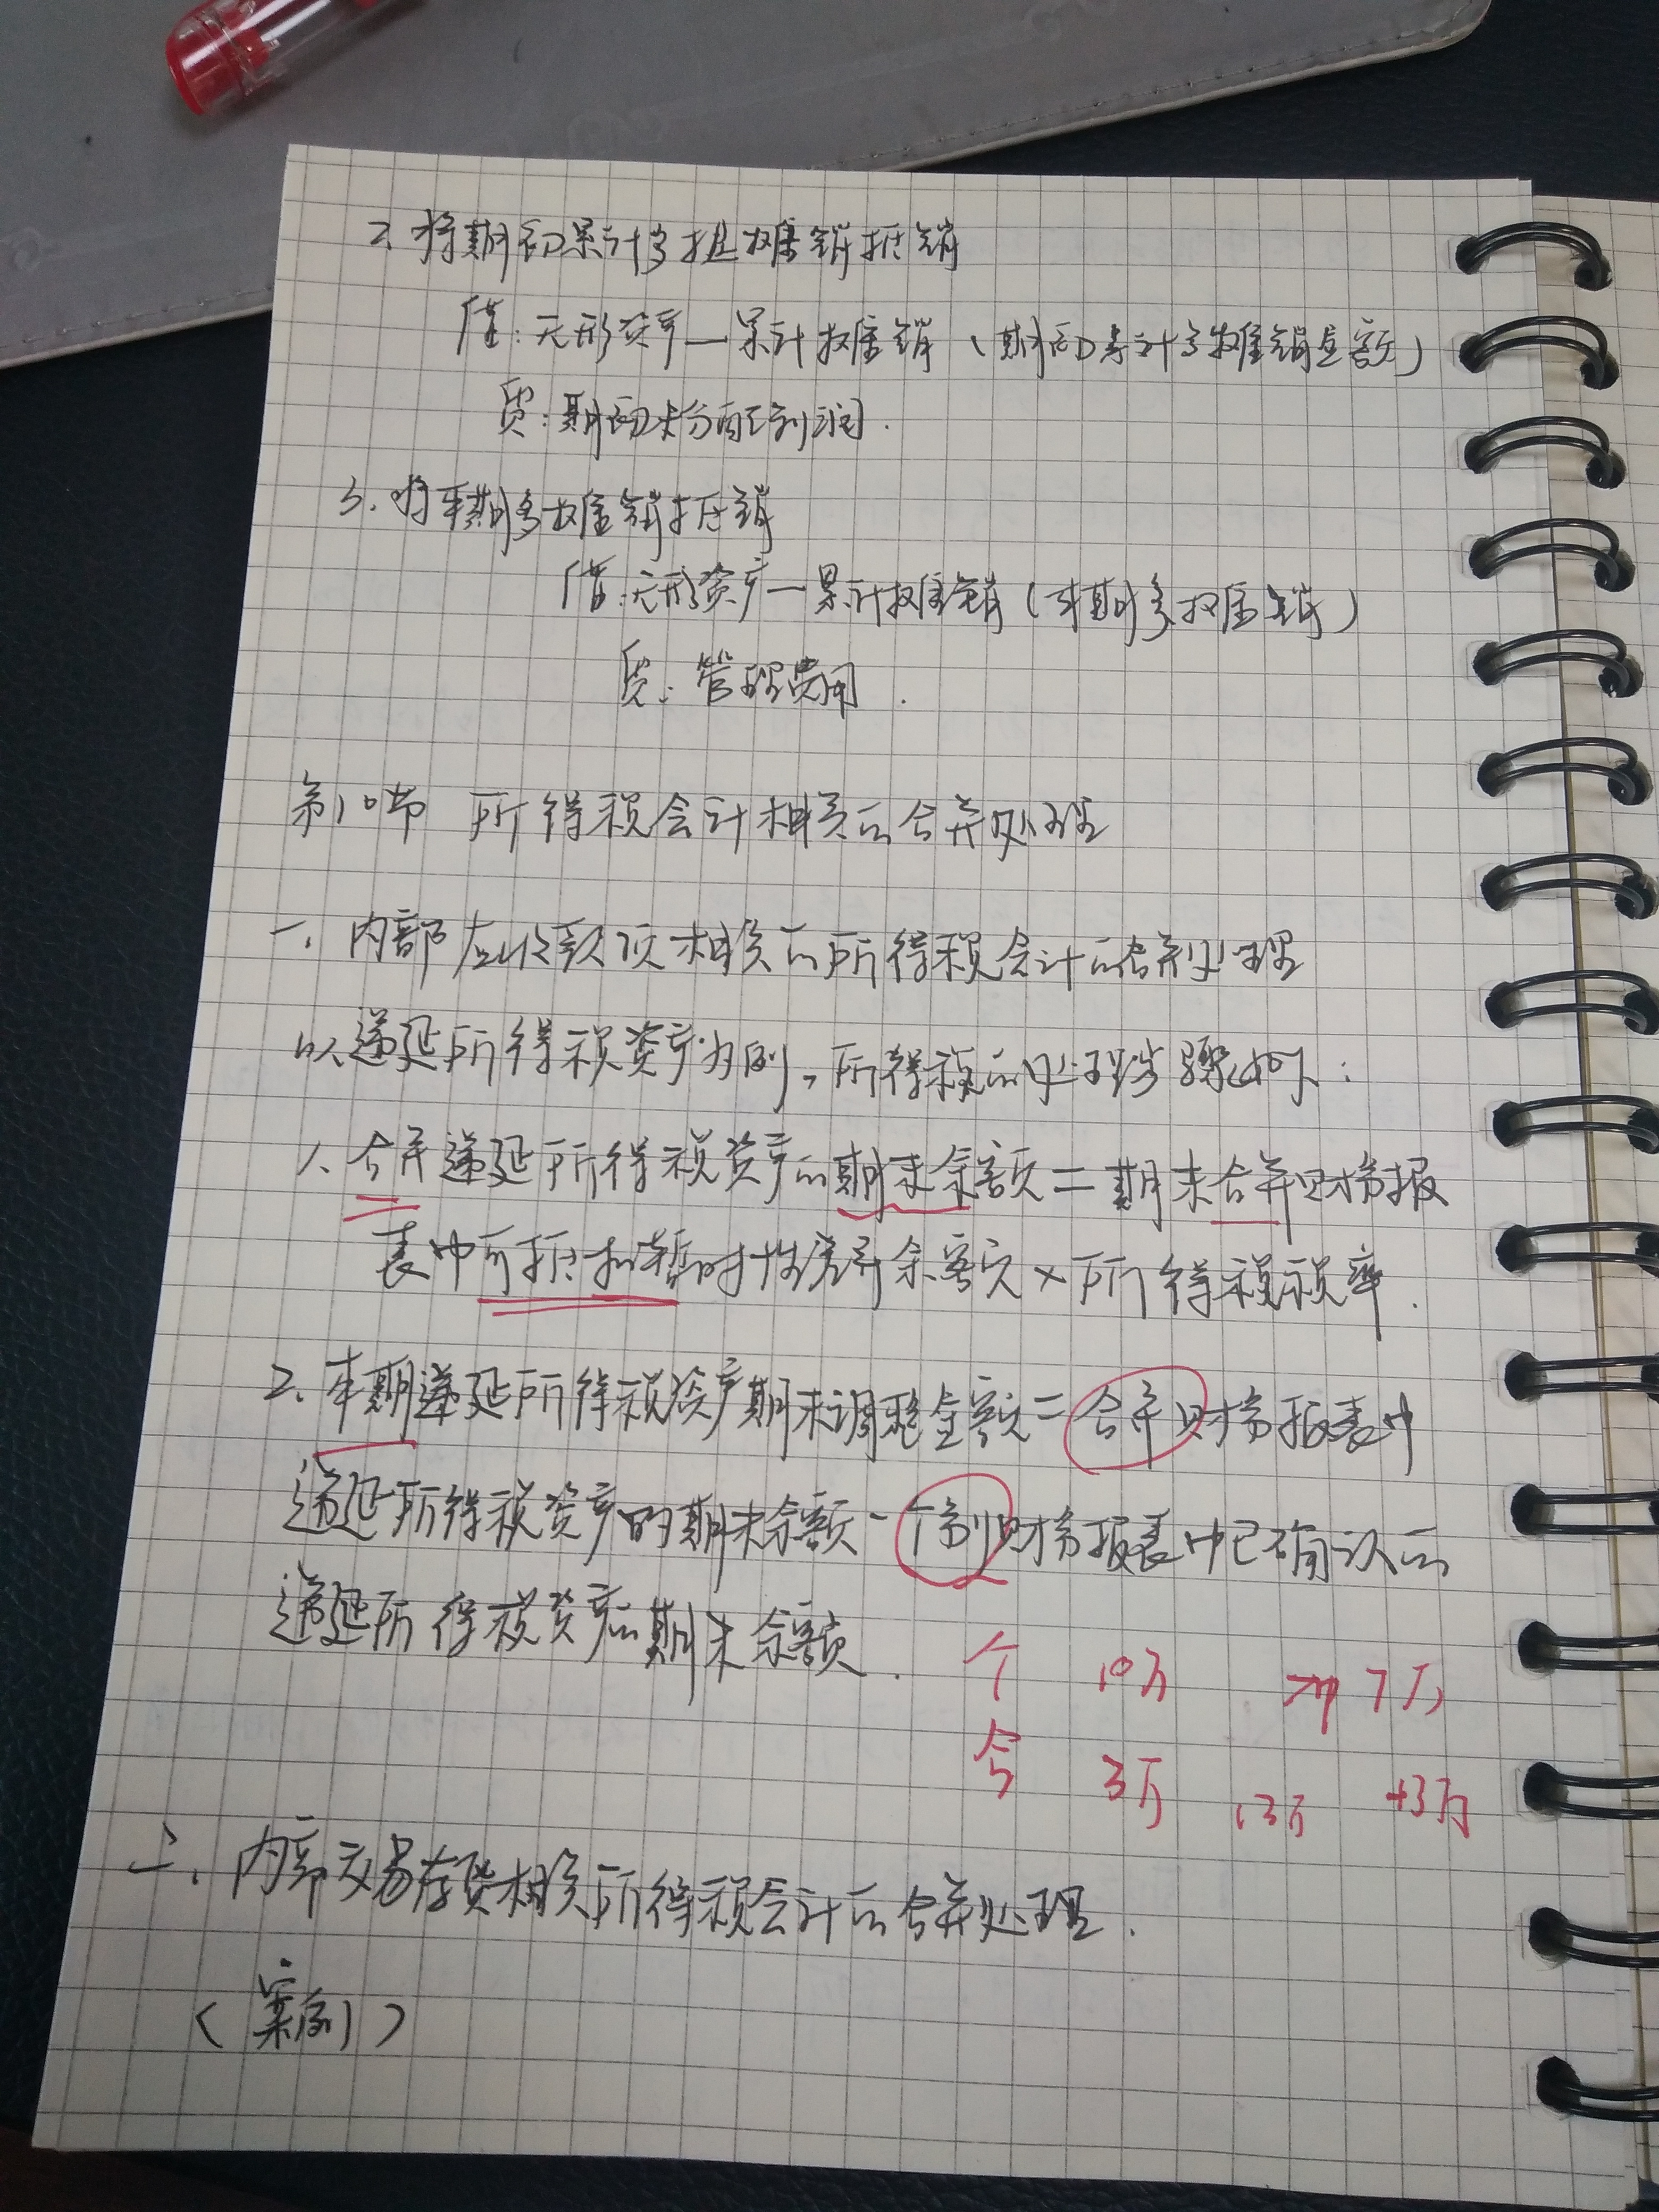 2. 将期初累计多提摊销抵销
借:无形资产—累计摊销(期初累计多摊销金额)
贷:期初未分配利润.
3. 将本期多摊销抵销
借:无形资产—累计摊销(本期多摊销)
贷:管理费用.
第10节 所得税会计相关的合并处理
一、内部应收款项相关的所得税会计的合并处理
以递延所得税资产为例,所得税的处理步骤如下:
1、合并递延所得税资产的期末余额=期末合并财务报
表中可抵扣暂时性差异余额×所得税税率.
2、本期递延所得税资产期末调整金额=合并财务报表中
递延所得税资产的期末余额-个别财务报表中已确认的
递延所得税资产的期末余额.
个 10万 7万
合 3万 13万 +3万
二、内部交易存货相关所得税会计的合并处理.
(案例)